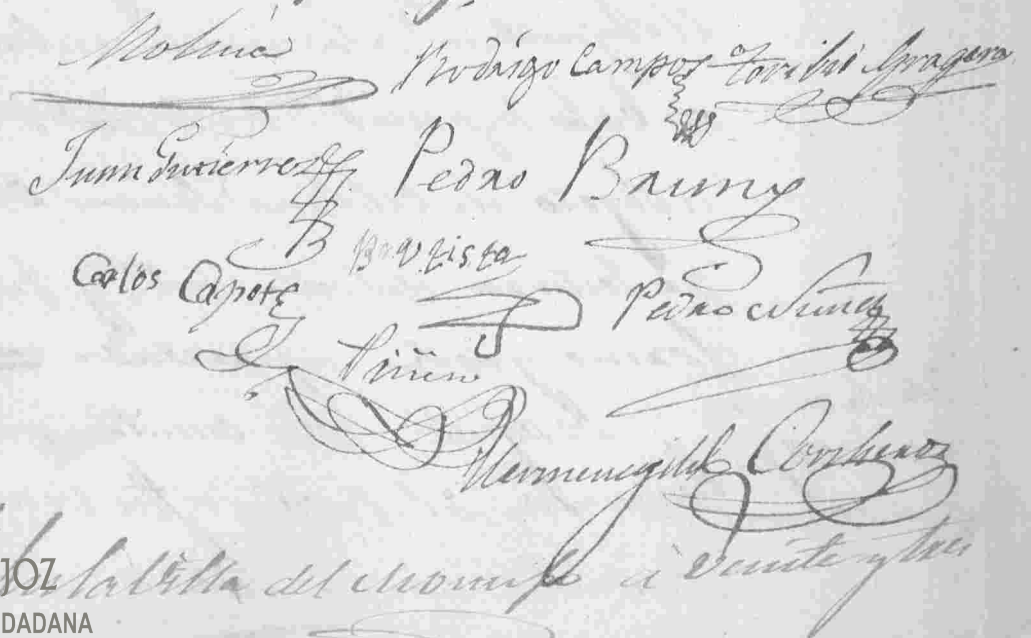 Molina
Rodrigo Campos Toribio Gragera
Juan Gutierrez Pedro Bauny
Bautista
Carlos Capote
Pedro Nuñez
Piñero
Hermenegildo
en la Villa del Montijo à veinte y tres
JOZ
DADANA